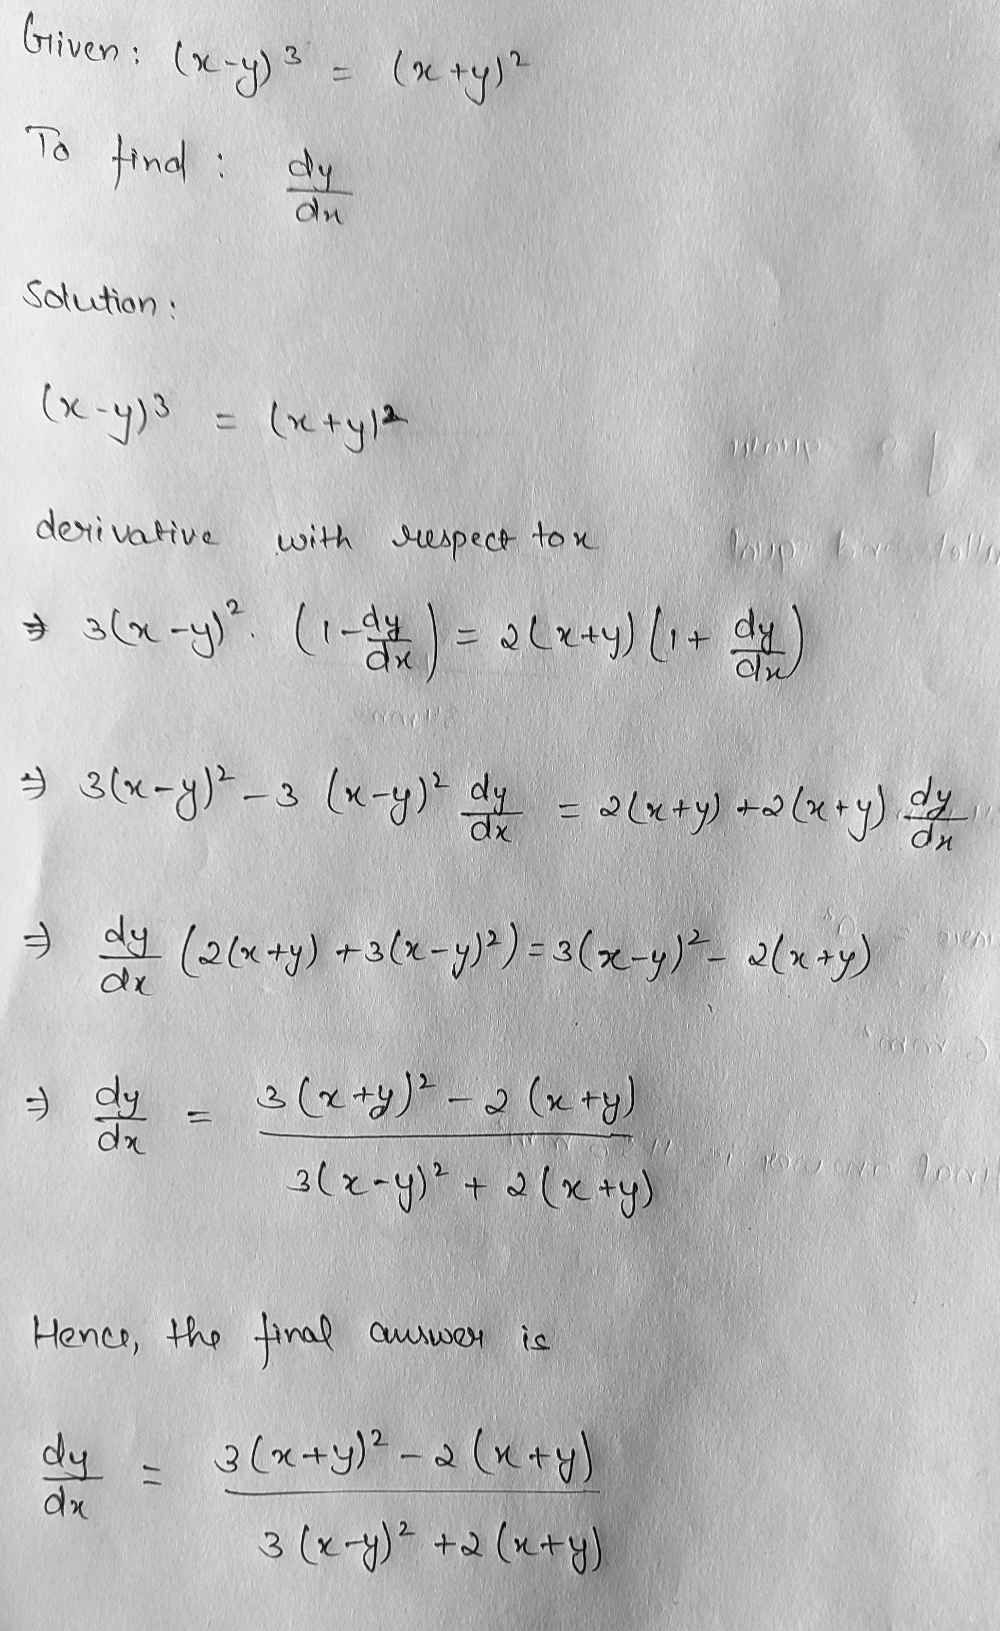 Given: (x-y)³ = (x+y)²
To find : dy/dx
Solution:
(x-y)³ = (x+y)²
derivative with respect to x
⇒ 3(x-y)². (1-dy/dx) = 2(x+y)(1+ dy/dx)
⇒ 3(x-y)² - 3 (x-y)² dy/dx = 2(x+y) +2(x+y) dy/dx
⇒ dy/dx (2(x+y) +3(x-y)²) = 3(x-y)² - 2(x+y)
⇒ dy/dx = 3(x+y)² - 2(x+y) / 3(x-y)² + 2(x+y)
Hence, the final answer is
dy/dx = 3(x+y)² - 2(x+y) / 3(x-y)² +2(x+y)